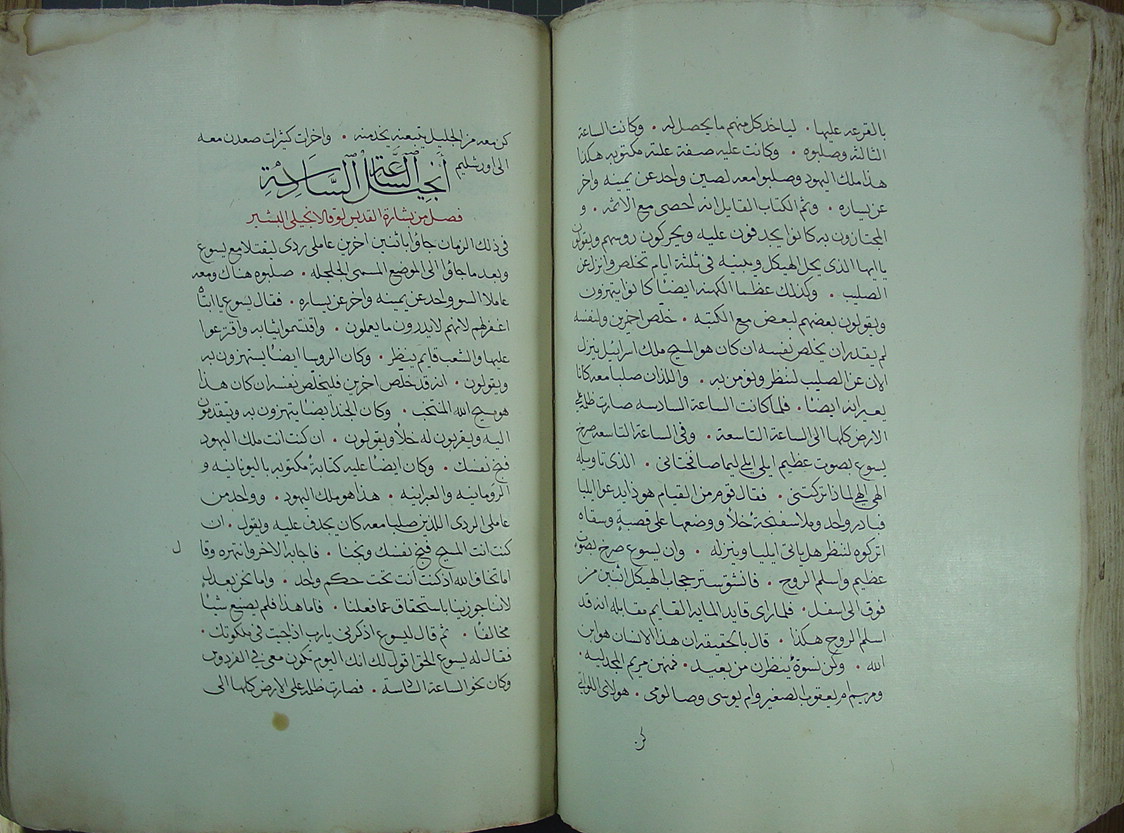 بالقرعه عليها . لياخد كل منهم ما يحصل له . وكانت الساعة
الثالثه وصلبوه . وكانت عليه صفة علته مكتوبه هكذا
هذا ملك اليهود وصلبوا معه لصين واحد عن يمينه واخر
عن يساره . وتم الكتاب القايل انه احصى مع الاثمه . و
المجتازون به كانوا يجدفون عليه ويحركون روسهم ويقولون
يا ايها الذى يحل الهيكل ويبنيه فى ثلثة ايام تخلص وانزل عن
الصليب . وكذلك عظما الكهنه ايضًا كانوا يتهزون
ويقولون بعضهم لبعض مع الكتبه . خلص اخرين ولنفسه
لم يقدر ان يخلص نفسه ان كان هو المسيح ملك اسرائيل ينزل
الان عن الصليب لننظر ونومن به . واللذان صلبا معه كانا
يعيرانه ايضًا . فلما كانت الساعة السادسه صارت ظلمة على
الارض كلها الى الساعة التاسعة . وفى الساعة التاسعه صرخ
يسوع بصوت عظيم ايلى ايلى ليما صافختانى . الذى تاويله
الهى الهى لماذا تركتنى . فقال قوم من القيام هوذا يدعو ايليا
فبادر واحد وملا سفنجة خلاً ووضعها على قصبة وسقاه
اتركوه لننظر هل ياتى ايليا وينزله . وان يسوع صرخ بصوت
عظيم واسلم الروح . فانشق ستر حجاب الهيكل اثنين من
فوق الى اسفل . فلما راى قايد المايه القايم مقابله انه قد
اسلم الروح هكذا . قال بالحقيقه ان هذا الانسان هو ابن
الله . وكن نسوةٌ ينظرن من بعيد . فمنهن مريم المجدليه .
ومريم ام يعقوب الصغير وام يوسى وصالومى . هولاى اللواتى
كن
كن معه من الجليل يتبعنه يخدمنه . واخرات كثيرات صعدن معه
الى اورشليم
انجيل الساعة السادسة
فصل من بشارة القديس لوقا الانجيلى البشير
فى ذلك الزمان جاؤا باثنين اخرين عاملى ردى ليقتلا مع يسوع
وبعد ما جاؤا الى الموضع المسمى الجلجله . صلبوه هناك ومعه
عاملا السو واحد عن يمينه واخر عن يساره . فقال يسوع يا ابتاه
اغفر لهم لانهم لا يدرون ما يعملون . واقتسموا ثيابه واقترعوا
عليها والشعب قايم ينظر . وكان الروسا ايضًا يستهزون به
ويقولون . انه قد خلص اخرين فليخلص نفسه ان كان هذا
هو مسيح الله المنتخب . وكان الجند ايضًا يتهزون به ويتقدمون
اليه ويقربون له خلاً ويقولون . ان كنت انت ملك اليهود
فنج نفسك . وكان ايضًا عليه كتابةٌ مكتوبه باليونانيه و
الرومانيه والعبرانيه . هذا هو ملك اليهود . وواحد من
عاملى الردى اللذين صلبا معه كان يجدف عليه ويقول . ان
كنت انت المسيح فنج نفسك ونجنا . فاجابه الاخر وانتهره وقا
ل
اما تخاف الله اذ كنت انت تحت حكم واحد . واما نحن بعدل
لاننا جوزينا باستحقاق عما فعلنا . فاما هذا فلم يصنع شيًا
مخالفًا . ثم قال ليسوع اذكرنى يا رب اذا جيت فى ملكوتك .
فقال له يسوع الحق اقول لك انك اليوم تكون معى فى الفردوس
وكان نحو الساعة السادسة . فصارت ظلمه على الارض كلها الى